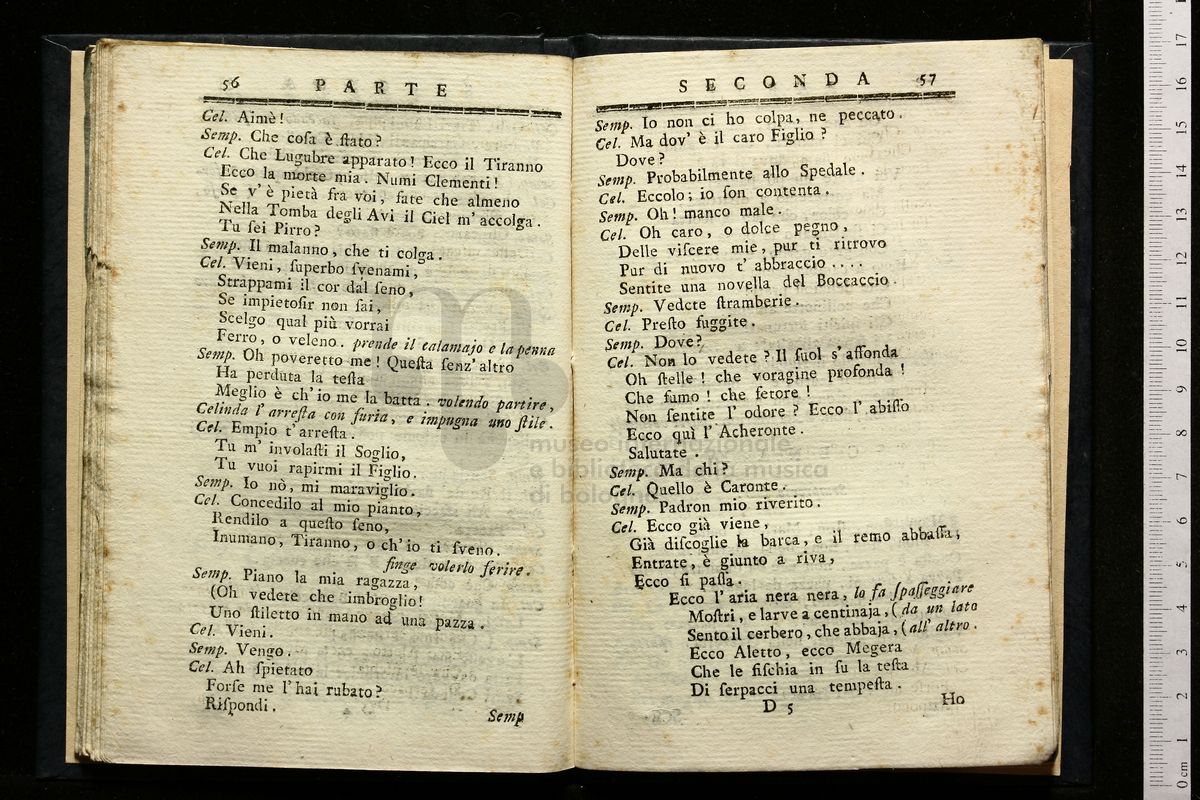 56 PARTE
Cel. Aimè!
Semp. Che coſa è ſtato?
Cel. Che Lugubre apparato! Ecco il Tiranno
Ecco la morte mia. Numi Clementi!
Se v' è pietà fra voi, fate che almeno
Nella Tomba degli Avi il Ciel m' accolga.
Tu ſei Pirro?
Semp. Il malanno, che ti colga.
Cel. Vieni, ſuperbo ſvenami,
Strappami il cor dal ſeno,
Se impietoſir non ſai,
Scelgo qual più vorrai
Ferro, o veleno. prende il calamajo e la penna
Semp. Oh poveretto me! Queſta ſenz' altro
Ha perduta la teſta
Meglio è ch' io me la batta. volendo partire,
Celinda l' arreſta con furia, e impugna uno ſtile.
Cel. Empio t' arreſta.
Tu m' involaſti il Soglio,
Tu vuoi rapirmi il Figlio.
Semp. Io nò, mi maraviglio.
Cel. Concedilo al mio pianto,
Rendilo a queſto ſeno,
Inumano, Tiranno, o ch' io ti ſveno.
finge volerlo ferire.
Semp. Piano la mia ragazza,
(Oh vedete che imbroglio!
Uno ſtiletto in mano ad una pazza.
Cel. Vieni.
Semp. Vengo.
Cel. Ah ſpietato
Forſe me l' hai rubato?
Riſpondi.
Semp
SECONDA 57
Semp. Io non ci ho colpa, ne peccato.
Cel. Ma dov' è il caro Figlio?
Dove?
Semp. Probabilmente allo Spedale.
Cel. Eccolo; io ſon contenta.
Semp. Oh! manco male.
Cel. Oh caro, o dolce pegno,
Delle viſcere mie, pur ti ritrovo
Pur di nuovo t' abbraccio....
Sentite una novella del Boccaccio.
Semp. Vedete ſtramberie.
Cel. Preſto fuggite.
Semp. Dove?
Cel. Non lo vedete? Il ſuol s' aſſonda
Oh ſtelle! che voragine profonda!
Che fumo! che fetore!
Non ſentite l' odore? Ecco l' abiſſo
Ecco quì l' Acheronte.
Salutate.
Semp. Ma chi?
Cel. Quello è Caronte.
Semp. Padron mio riverito.
Cel. Ecco già viene,
Già diſcoglie la barca, e il remo abbaſſa,
Entrate, è giunto a riva,
Ecco ſi paſſa.
Ecco l' aria nera nera, lo fa ſpaſſeggiare
Moſtri, e larve a centinaja, (da un lato
Sento il cerbero, che abbaja, (all' altro.
Ecco Aletto, ecco Megera
Che le fiſchia in ſu la teſta
Di ſerpacci una tempeſta.
D 5 Ho
museo internazionale
e biblioteca della musica
di bologna
0 cm 1 2 3 4 5 6 7 8 9 10 11 12 13 14 15 16 17